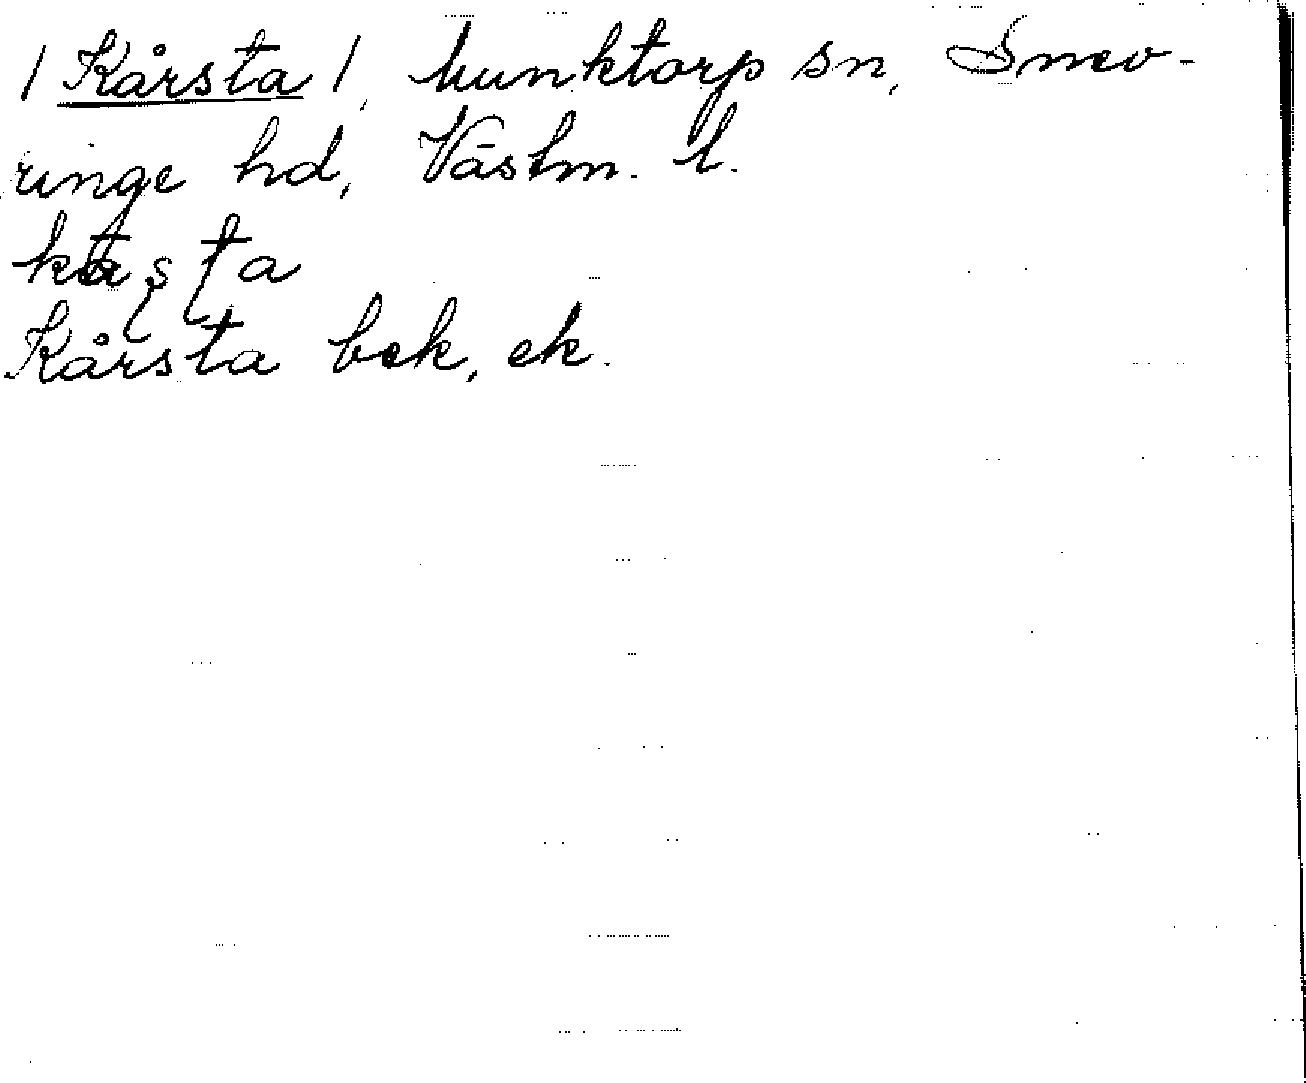 / Kårsta /, Munktorp sn, Snev-
ringe hd, Västm. l.
Kårsta bek, ek.